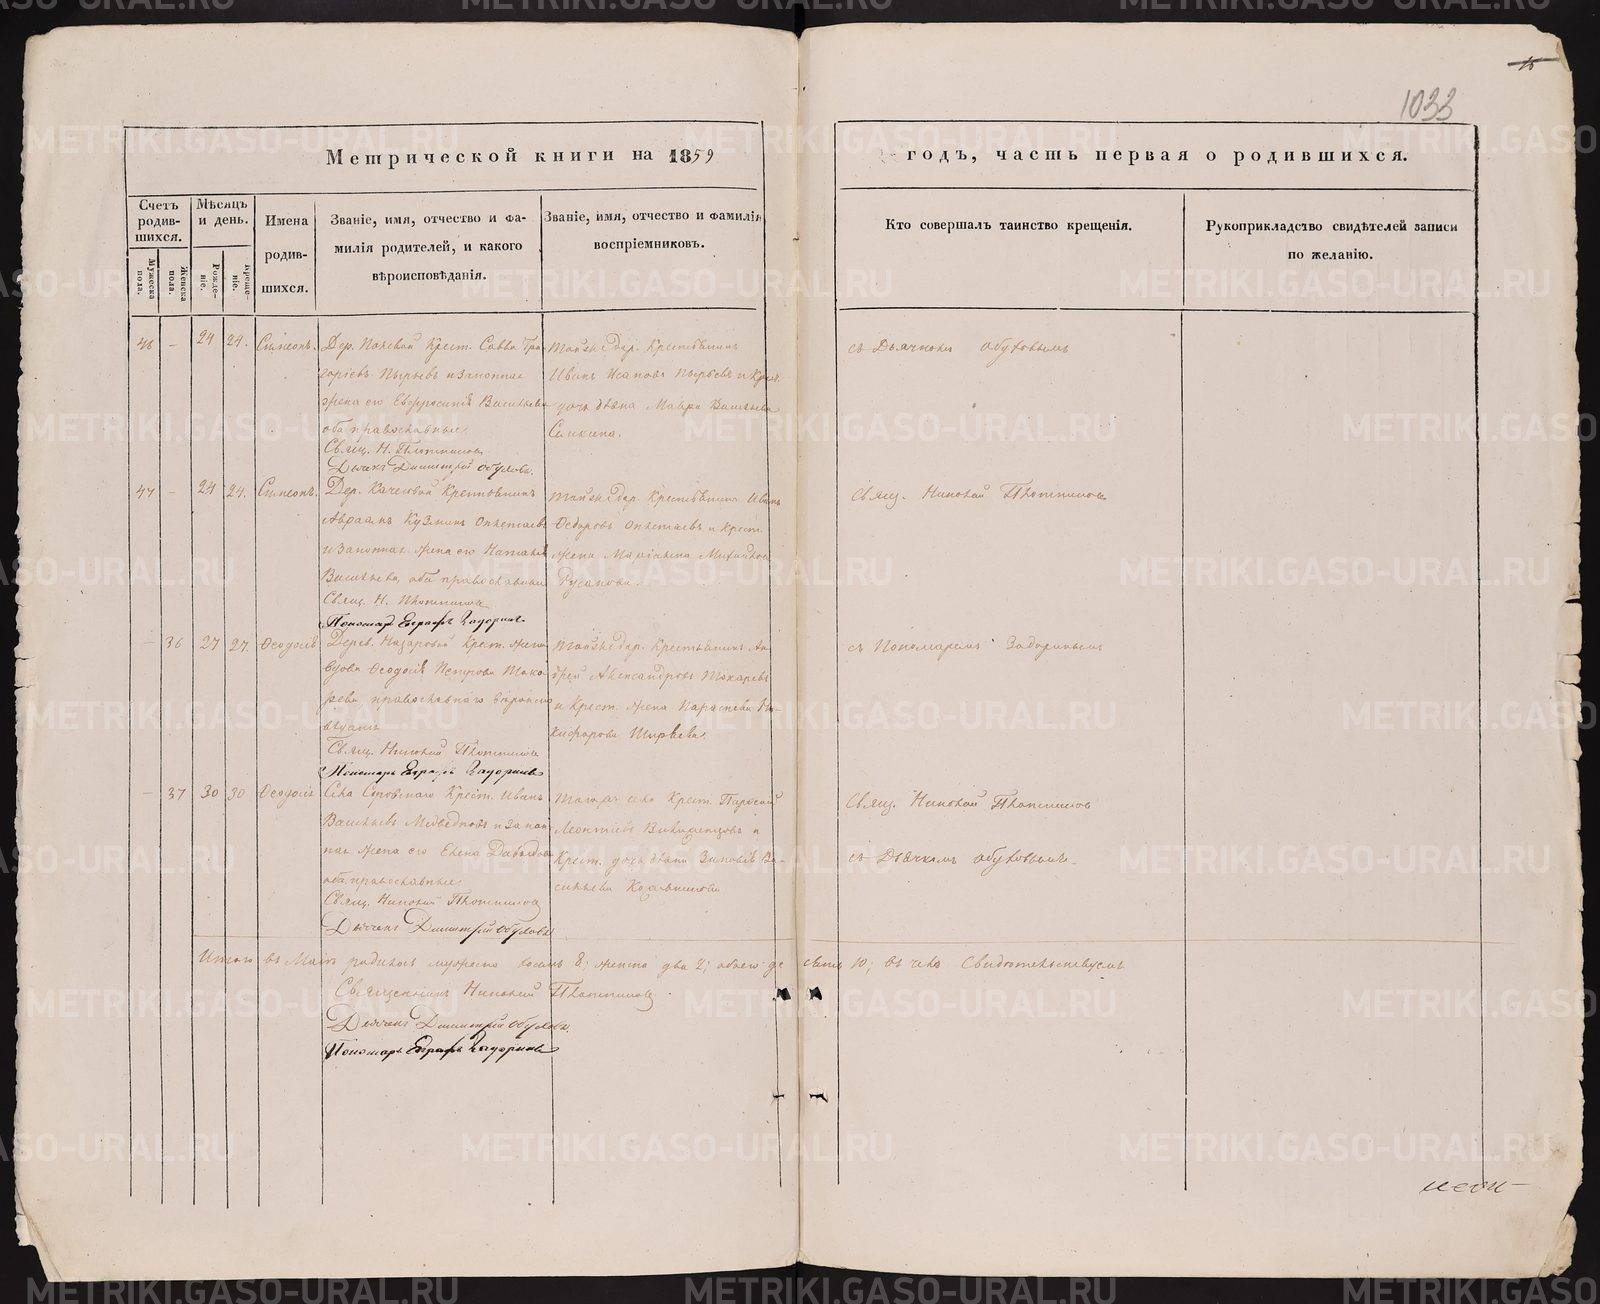 1033
Метрической книги на 1859
годъ, часть первая о родившихся.
Счетъ родив-шихся.
Мѣсяцъ и день.
Имена родив-шихся.
Званіе, имя, отчество и фа-
милія родителей, и какого
вѣроисповѣданія.
Званіе, имя, отчество и фамилія
воспріемниковъ.
Кто совершалъ таинство крещенія.
Рукоприкладство свидѣтелей записи
по желанію.
Мужеска пола.
Женска пола.
Рожде-ніе.
Креще-ніе.
46 - 24 24. Симеонъ.
Крест. Савва Гри-
горіевъ Пырьевъ и законная
жена его Евфросинія Васильева
оба православные.
Свящ. Н. Плотниковъ
Дьячекъ Димитрій Обуховъ.
Тойже дер. Крестьянинъ
Иванъ Исаковъ Пырьевъ и Крест.
дочь дѣвка Мавра Васильева
съ Дьячкомъ Обуховымъ
47 - 24 24. Симеонъ.
Дер. Крестьянинъ
Авраамъ Кузминъ
и законная жена его Наталья
Васильева, оба православные
Свящ. Н. Плотниковъ
Пономарь Евграфъ Задоринъ
Тойже дер. Крестьянинъ Иванъ
Ѳедоровъ и крест.
жена Михайлова
Русакова.
Свящ. Николай Плотниковъ
- 36 27 27. Ѳеодосія
Дерев. Назаровой Крест. жена
вдова Ѳеодосія Петрова Тока-
рева, православнаго вѣроиспо-
вѣданія
Свящ. Николай Плотниковъ
Пономарь Евграфъ Задоринъ
Тойже дер. Крестьянинъ Ан-
дрей Александровъ Токаревъ
и Крест. жена Параскева Ни-
кифорова Ширяева.
съ Пономаремъ Задоринымъ
- 37 30 30 Ѳеодосія
Села Крест. Иванъ
Васильевъ Медвѣдковъ и закон-
ная жена его Елена Давыдова
оба православные.
Свящ. Николай Плотниковъ
Дьячекъ Димитрій Обуховъ
Тогоже села Крест.
Леонтіевъ и
Крест. дочь дѣвка Зиновія Ва-
сильева
Свящ. Николай Плотниковъ
съ Дьячкомъ Обуховымъ.
Итого въ Маѣ родилось мужеска восемь 8; женска два 2; обоего де-сять 10; въ чемъ Свидѣтельствуемъ
Священникъ Николай Плотниковъ
Дьячекъ Димитрій Обуховъ.
Пономарь Евграфъ Задоринъ
METRIKI.GASO-URAL.RU